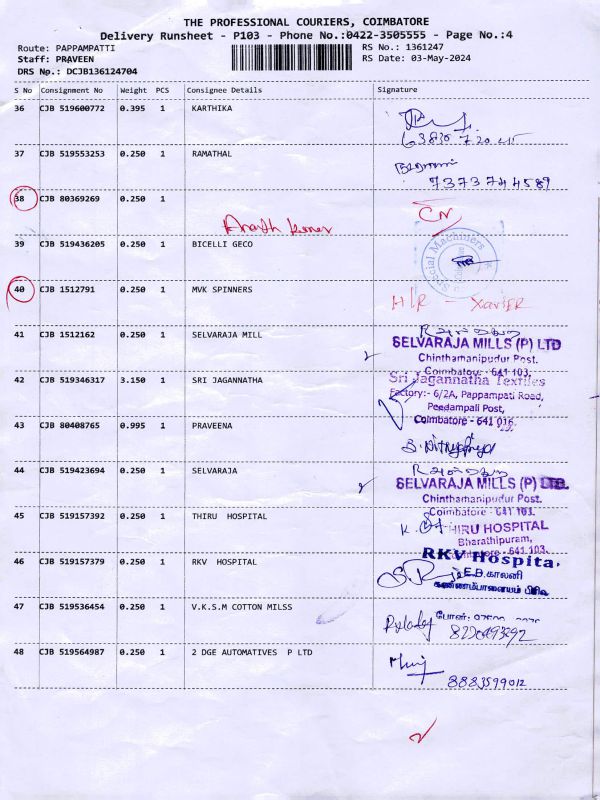 THE PROFESSIONAL COURIERS, COIMBATORE
Delivery Runsheet - P103 - Phone No.:0422-3505555 - Page No.:4
Route: PAPPAMPATTI
RS No.: 1361247
Staff: PRAVEEN
RS Date: 03-May-2024
DRS Np.: DCJB136124704
S No Consignment No Weight PCS Consignee Details Signature
36 CJB 519600772 0.395 1 KARTHIKA
37 CJB 519553253 0.250 1 RAMATHAL
7373744589
38 CJB 80369269 0.250 1
CN
39 CJB 519436205 0.250 1 BICELLI GECO
Special Machines
40 CJB 1512791 0.250 1 MVK SPINNERS
H/R - XAVIER
41 CJB 1512162 0.250 1 SELVARAJA MILL
SELVARAJA MILLS (P) LTD
Chinthamanipudur Post.
Coimbatore - 641 103.
42 CJB 519346317 3.150 1 SRI JAGANNATHA
Sri Jagannatha Textiles
Factory:- 6/2A, Pappampati Road,
Peedampali Post,
Coimbatore - 641 016.
43 CJB 80408765 0.995 1 PRAVEENA
44 CJB 519423694 0.250 1 SELVARAJA
SELVARAJA MILLS (P) LTD.
Chinthamanipudur Post.
Coimbatore - 641 103.
45 CJB 519157392 0.250 1 THIRU HOSPITAL
THIRU HOSPITAL
Bharathipuram,
Coimbatore - 641 103.
46 CJB 519157379 0.250 1 RKV HOSPITAL
RKV Hospital
E.B.காலனி
கண்ணம்பாளையம் பிரிவு
47 CJB 519536454 0.250 1 V.K.S.M COTTON MILSS
போன்:
8220493292
48 CJB 519564987 0.250 1 2 DGE AUTOMATIVES P LTD
8883599012